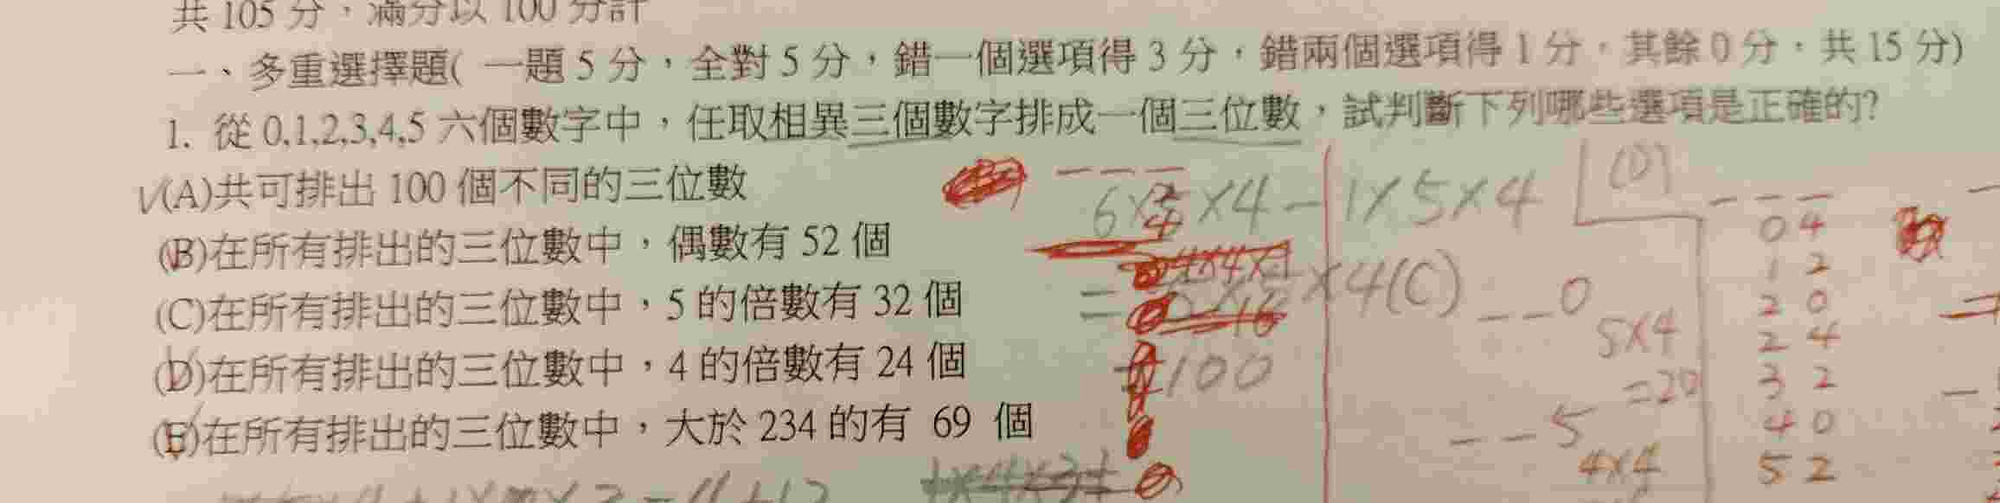 共 105 分,滿分以 100 分計
一、多重選擇題( 一題 5 分,全對 5 分,錯一個選項得 3 分,錯兩個選項得 1 分,其餘 0 分,共 15 分)
1. 從 0,1,2,3,4,5 六個數字中,任取相異三個數字排成一個三位數,試判斷下列哪些選項是正確的?
(A)共可排出 100 個不同的三位數
(B)在所有排出的三位數中,偶數有 52 個
(C)在所有排出的三位數中,5 的倍數有 32 個
(D)在所有排出的三位數中,4 的倍數有 24 個
(E)在所有排出的三位數中,大於 234 的有 69 個
- 1×5×4
100
(C) _ _ 0
5×4
=20
_ _ 5
4×4
(D) _ _ _
0 4
1 2
2 0
2 4
3 2
4 0
5 2